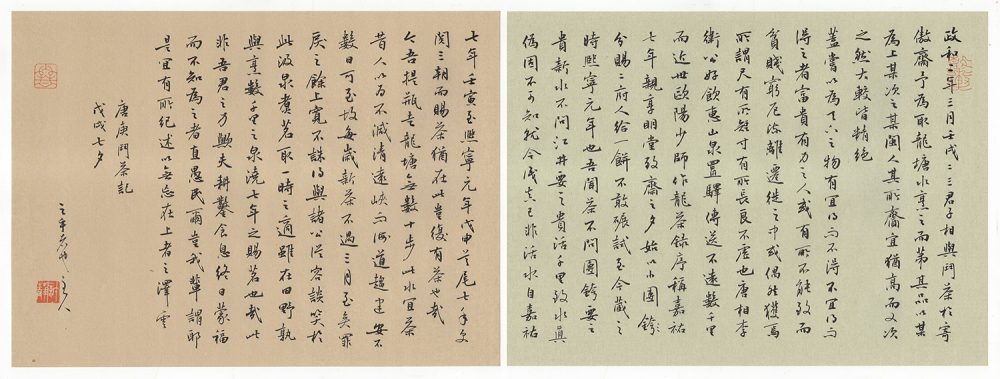 政和二年三月壬戌二三君子相與鬥茶於寄
傲齋予為取龍塘水烹之而第其品以某
為上某次之某閩人其所齎宜猶高而又次
之然大較皆精絕
蓋嘗以為天下之物有宜得而不得不宜得而
得之者富貴有力之人或有所不能致而
貧賤窮厄流離遷徙之中或偶然獲焉
所謂尺有所短寸有所長良不虛也唐相李
衛公好飲惠山泉置驛傳送不遠數千里
而近世歐陽少師作龍茶錄序稱嘉祐
七年親享明堂致齋之夕始以小團
分賜二府人給一餅不敢碾試至今藏之
時熙寧元年也吾聞茶不問團銙要之
貴新水不問江井要之貴活千里致水真
偽固不可知就令識真已非活水自嘉祐
七年壬寅至熙寧元年戊申首尾七年更
閱三朝而賜茶猶在此豈復有茶也哉
今吾提瓶走龍塘無數十步此水宜茶
昔人以為不減清遠峽而海道趨建安不
數日可至故每歲新茶不過三月至矣罪
戾之餘上寬不誅得與諸公從容談笑於
此汲泉煮茗取一時之適雖在田野孰
與烹數千里之泉澆七年之賜茗也哉此
非吾君之力歟夫耕鑿食息終日蒙福
而不知為之者直愚民爾豈我輩謂耶
是宜有所紀述以無忘在上者之澤云
唐庚鬥茶記
戊戌七夕